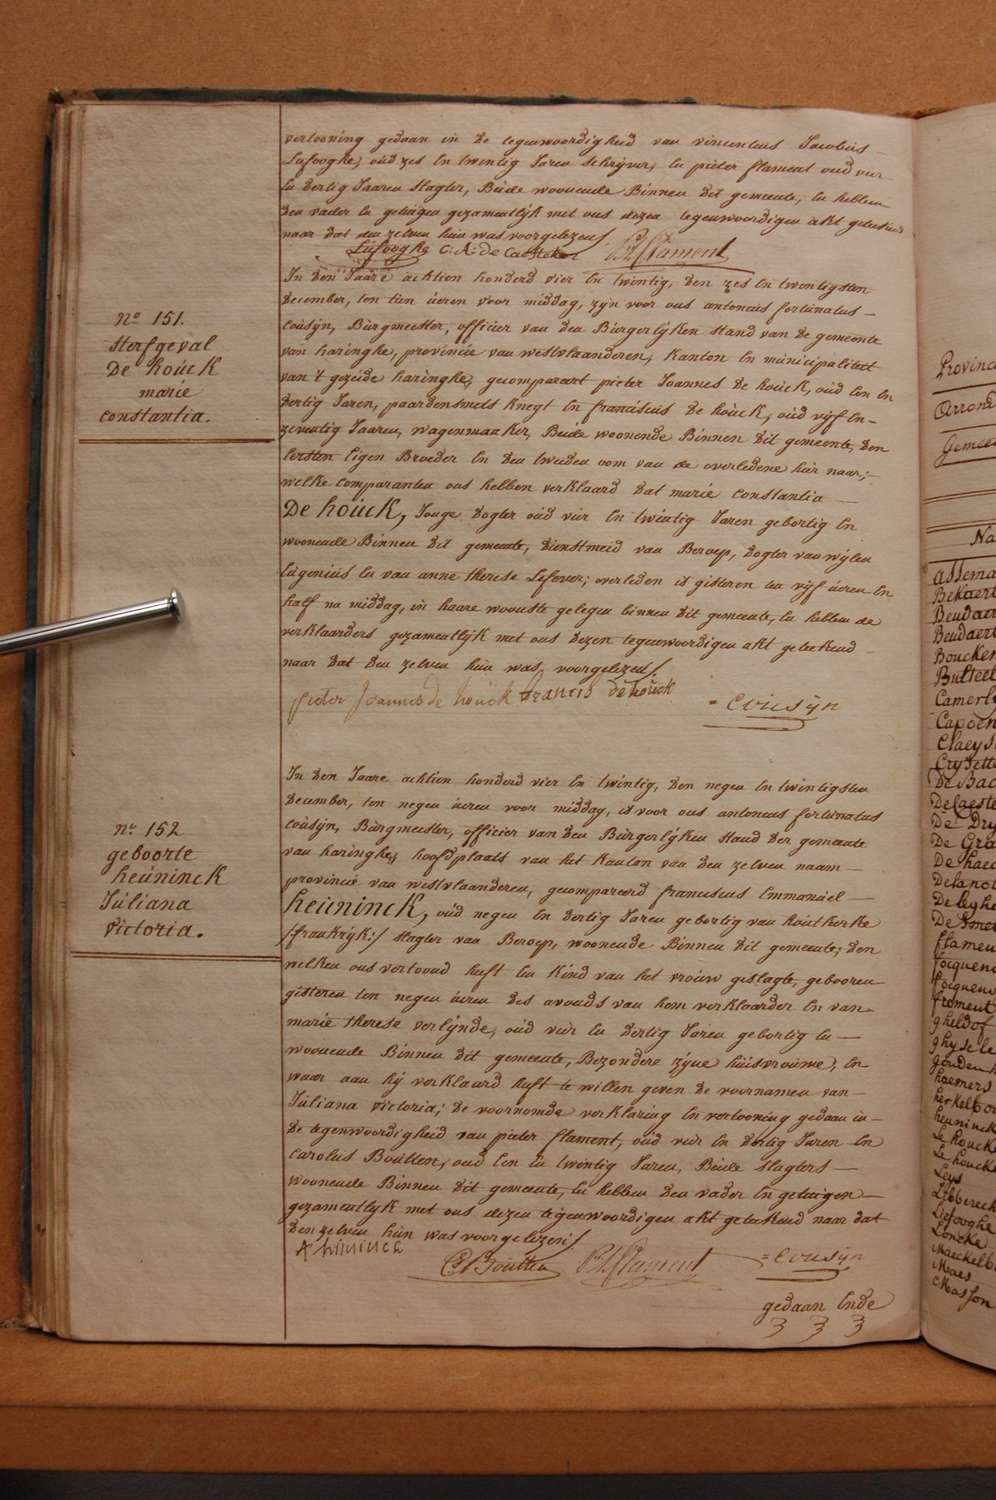 vertooning gedaan in de tegenwoordigheid van vincentius Jacobus
Lefooghe, oud zes en twintig Jaren schrijver, en pieter flament oud vier
en dertig Jaaren slagter, Beide woonende Binnen dit gemeente, en hebben
den vader en getuigen gezamentlyk met ons dezen tegenwoordigen akt geteekend
naar dat den zelven hun was voorgelezen
Lefooghe C: A: de Caesteker PFlament
In den Jaare achtien honderd vier en twintig, den zes en twintigsten
december, ten tien ueren voor middag, zijn voor ons antonius fortunatus
Cousijn, Burgmeester, officier van den Burgerlijken stand van de gemeente
van haringhe, provincie van westvlaanderen, kanton en municipaliteit
van 't gezeide haringhe, gecomparart pieter Joannes De houck, oud een en
dertig Jaren, paardensmets knegt en franciscus De houck, oud vijf en
zeventig Jaaren, wagenmaaker, Beide woonende Binnen dit gemeente, den
eersten Eigen Broeder en den tweeden oom van de overledene hier naar;
welke comparanten ons hebben verklaard dat marie constantia
De houck, Jonge dogter oud vier en twintig Jaren gebortig en
woonende Binnen dit gemeente, dienstmeid van Beroep, dogter van wijlen
Eugenius en van anne therese Lefever; overleden is gisteren ten vijf ueren en
half na middag, in haare wooneste gelegen binnen dit gemeente, en hebben de
verklaarders gezamentlyk met ons dezen tegenwoordigen akt geteekend
naar dat den zelven hun was voorgelezen
pieter Joannes de houck francis dehouck = Cousijn
n° 151.
sterfgeval
De houck
marie
constantia.
In den Jaare achtien honderd vier en twintig, den negen en twintigsten
december, ten negen ueren voor middag, is voor ons antonius fortunatus
Cousijn, Burgmeester, officier van den Burgerlijken stand der gemeente
van haringhe, hoofdplaats van het kanton van den zelven naam
provincie van westvlaanderen, gecompareerd franciscus Emmanuel
heuninck, oud negen en dertig Jaren gebortig van houtkerke
/:frankrijk:/ slagter van Beroep, woonende Binnen dit gemeente; den
welken ons vertoond heeft een kind van het vrouw geslagte, geboren
gisteren ten negen ueren des avonds van hem verklaarder en van
marie therese verlijnde, oud vier en dertig Jaren gebortig en
woonende Binnen dit gemeente, Bezondere zijne huisvrouwe, en
waar aan hij verklaard heeft te willen geven de voornamen van
Juliana victoria; de voornomde verklaring en vertooning gedaan in
de tegenwoordigheid van pieter flament, oud vier en dertig Jaren en
Carolus Boutten, oud Een en twintig Jaren, Beide slagters
woonende Binnen dit gemeente, en hebben den vader en getuigen
gezamentlyk met ons dezen tegenwoordigen akt geteekend naar dat
den zelven hun was voorgelezen
heninck Boutten PFlament = Cousijn
gedaan Ende
n° 152
geboorte
heuninck
Juliana
victoria.
Provinc
Arrond
Gemee
Na
assema
Bekaert
Beudaer
Beudaert
Boucken
Butteel
Camerly
Capoen
Claeys
De Bac
De Caeste
De Dry
De Gra
De haec
Delanot
De leghe
De Smet
flamen
focquen
focqueno
froment
gheldof
ghysele
gouden
haemers
herkelbo
heuninck
Le houck
Le houck
Leys
Libbereck
Liefooghe
Loncke
Maeckelb
Maes
Masson